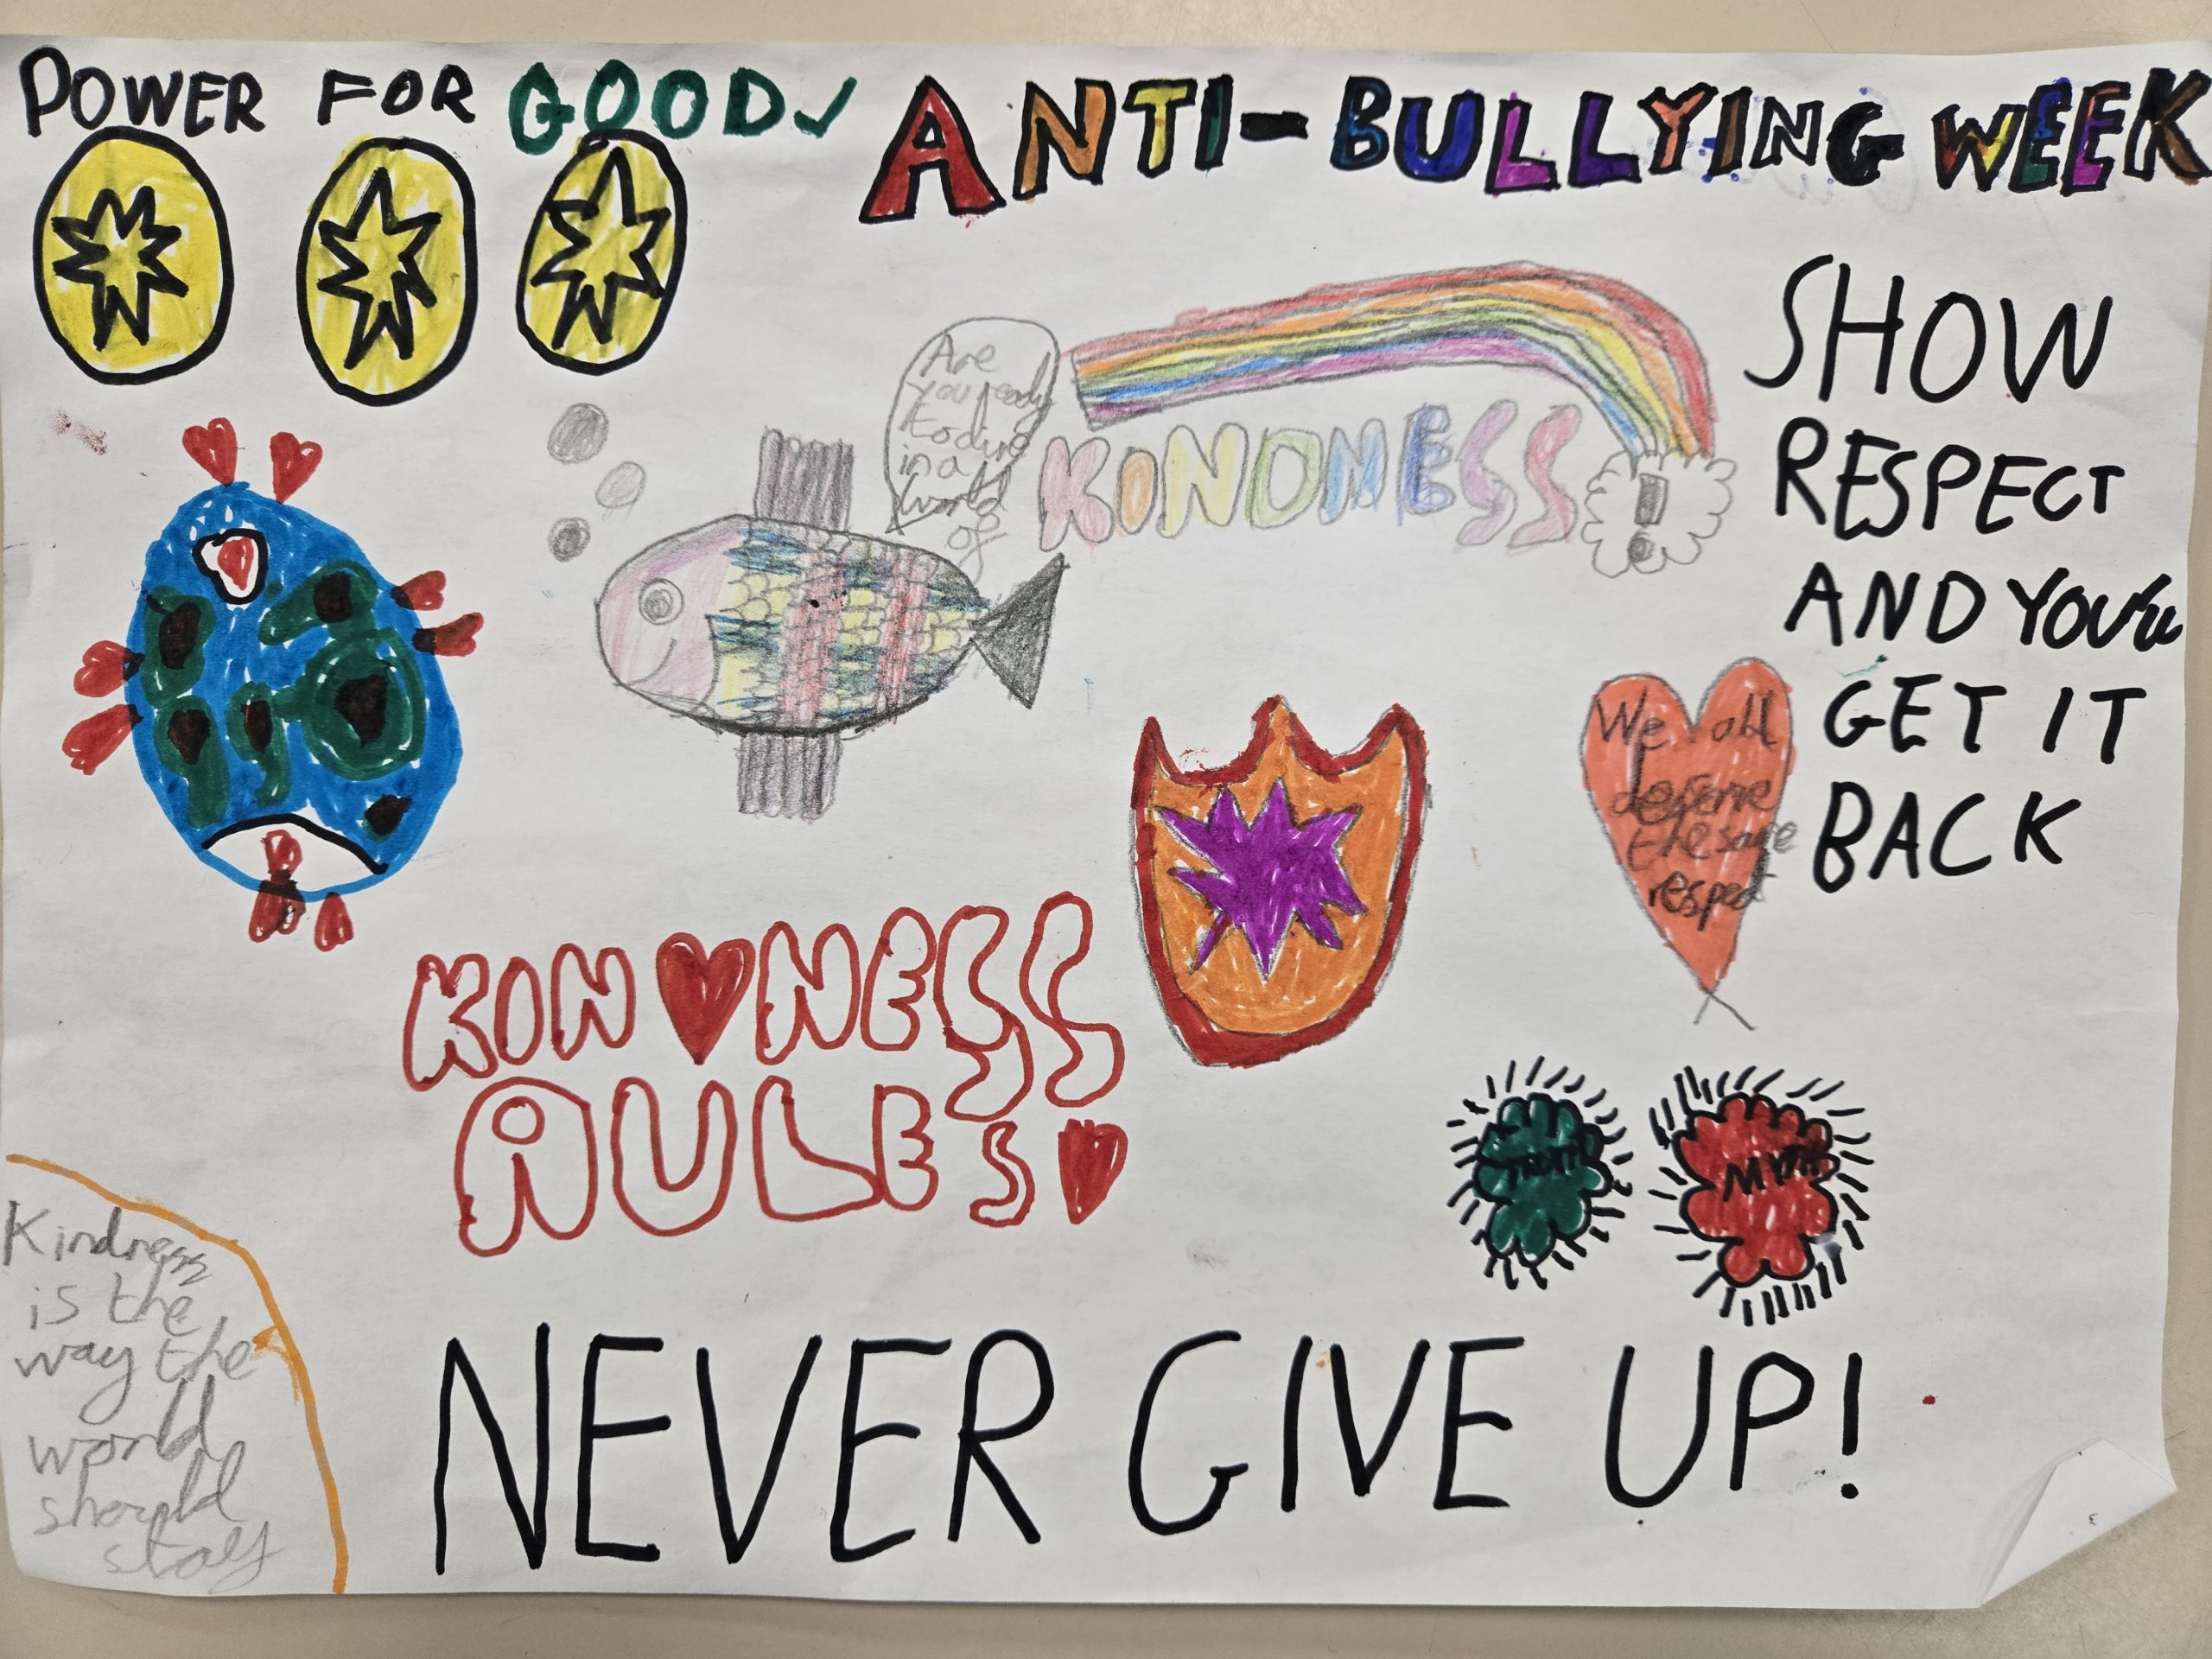 POWER FOR GOOD
ANTI-BULLYING WEEK
Are
you ready
to dive
in a
world
of
KINDNESS
SHOW
RESPECT
AND YOU'll
GET IT
BACK
We all
deserve
the same
respect
KINDNESS
RULES
MYTH
Kindness
is the
way the
world
should
stay
NEVER GIVE UP!